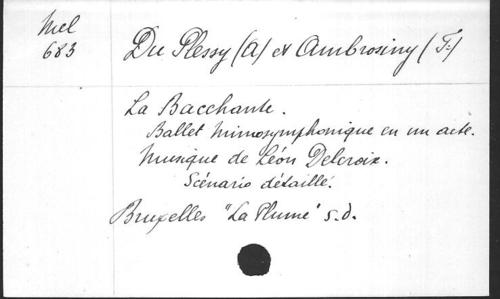 Mel
683
Du Plessy (A) et Ambrosiny (F.)
La Bacchante.
Ballet mimosymphonique en un acte.
Musique de Léon Delcroix.
Scénario détaillé.
Bruxelles "La Plume" s.d.